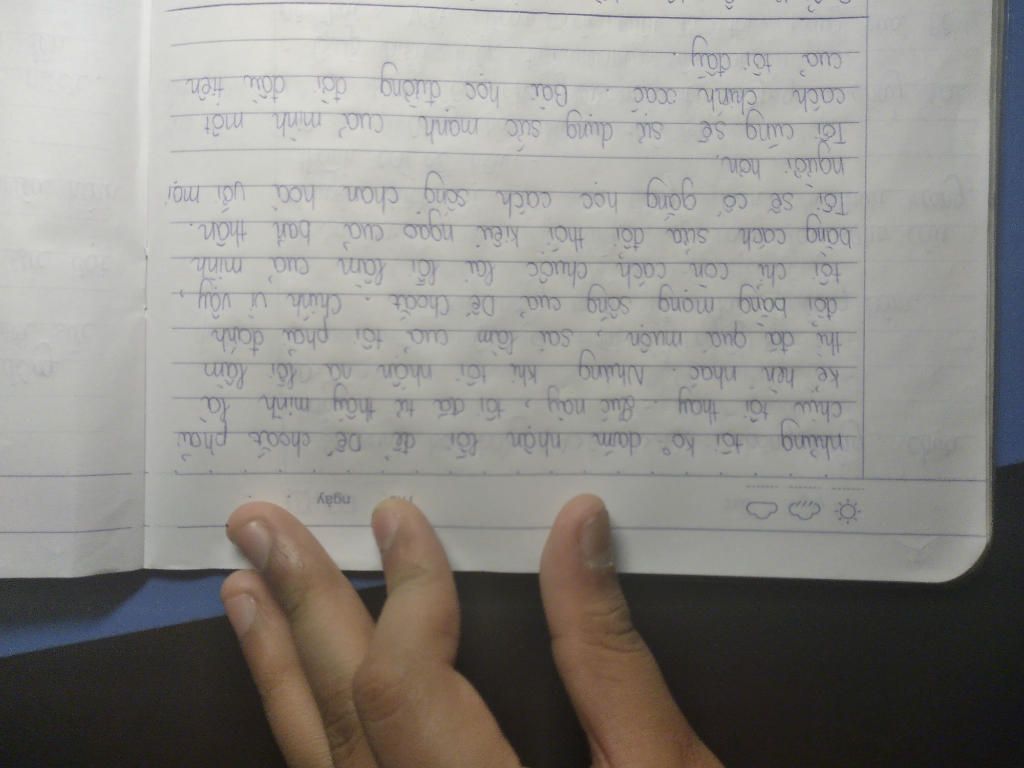 ngày
những tôi ko dám nhận lỗi để Dế choắt phải
chịu tôi thay. Lúc này, tôi đã tự thấy mình là
kẻ hèn nhác. Nhưng khi tôi nhận ra lỗi lầm
thì đã quá muộn, sai lầm của tôi phải đánh
đổi bằng mạng sống của Dế choắt. Chính vì vậy,
tôi chỉ còn cách chuộc lại lỗi lầm của mình
bằng cách sửa đổi thói kiêu ngạo của bản thân.
Tôi sẽ cố gắng học cách sống chan hoà với mọi
người hơn.
Tôi cũng sẽ sử dụng sức mạnh của mình một
cách chính xác. Bài học đường đời đầu tiên
của tôi đấy.